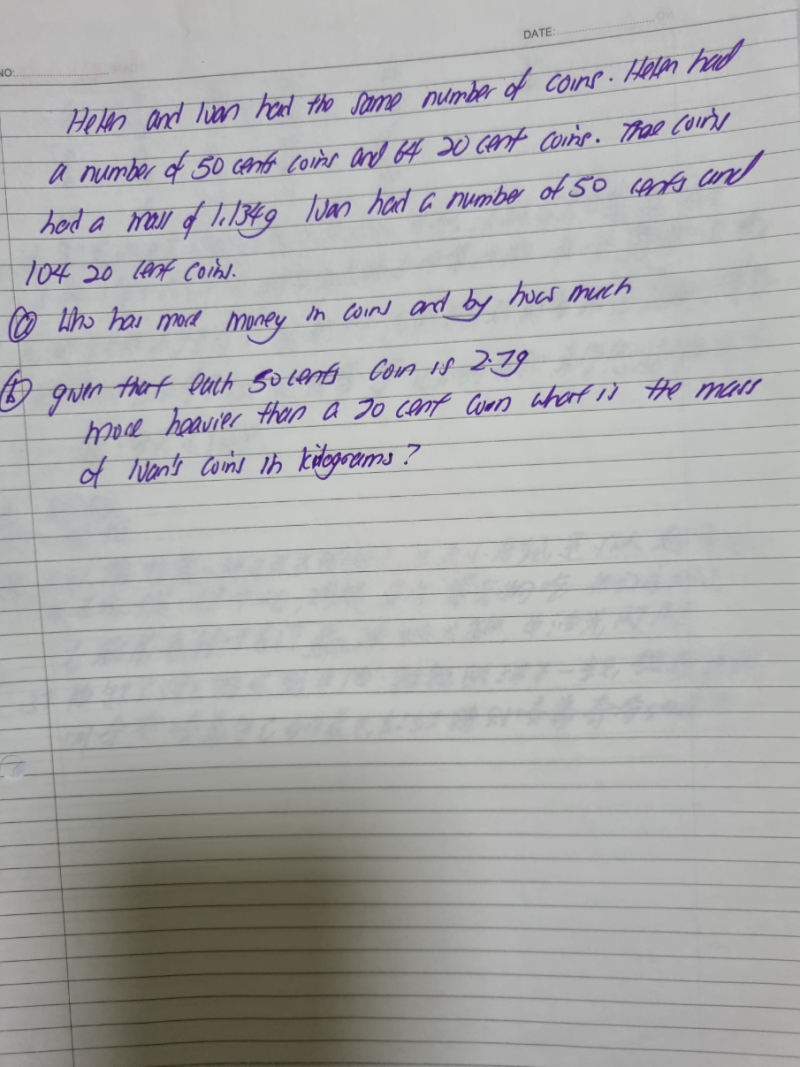 NO:
DATE:
Helen and Ivan had the same number of coins. Helen had
a number of 50 cents coins and 64 20 cent coins. These coins
had a mass of 1.134g Ivan had a number of 50 cents and
104 20 cent coins.
(a) Who has more money in coins and by how much
(b) given that each 50 cents coin is 2.7g
more heavier than a 20 cent coin what is the mass
of Ivan's coins in kilograms?